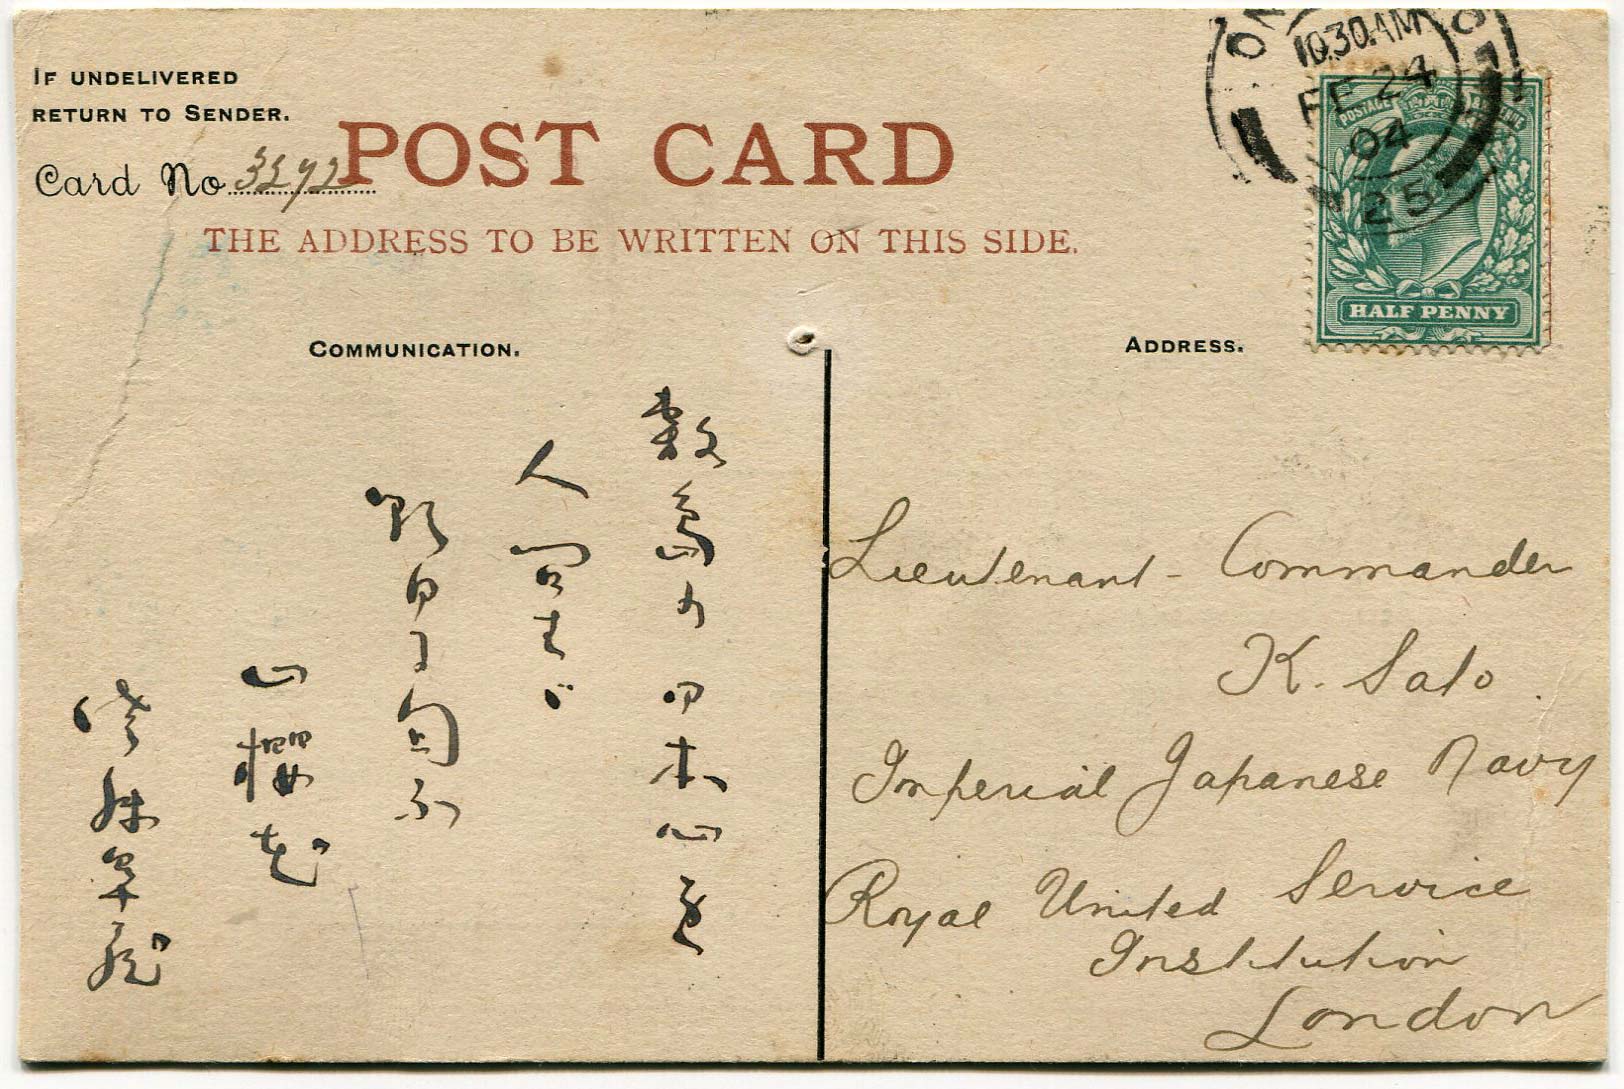 IF UNDELIVERED
RETURN TO SENDER.
Card No
POST CARD
THE ADDRESS TO BE WRITTEN ON THIS SIDE.
10.30AM
FE 24
04
25
POSTAGE
HALF PENNY
COMMUNICATION.
敷島の日本心を
人問はゞ
朝日に匂ふ
山櫻花
ADDRESS.
Lieutenant - Commander
K. Sato
Imperial Japanese Navy
Royal United Service
Institution
London